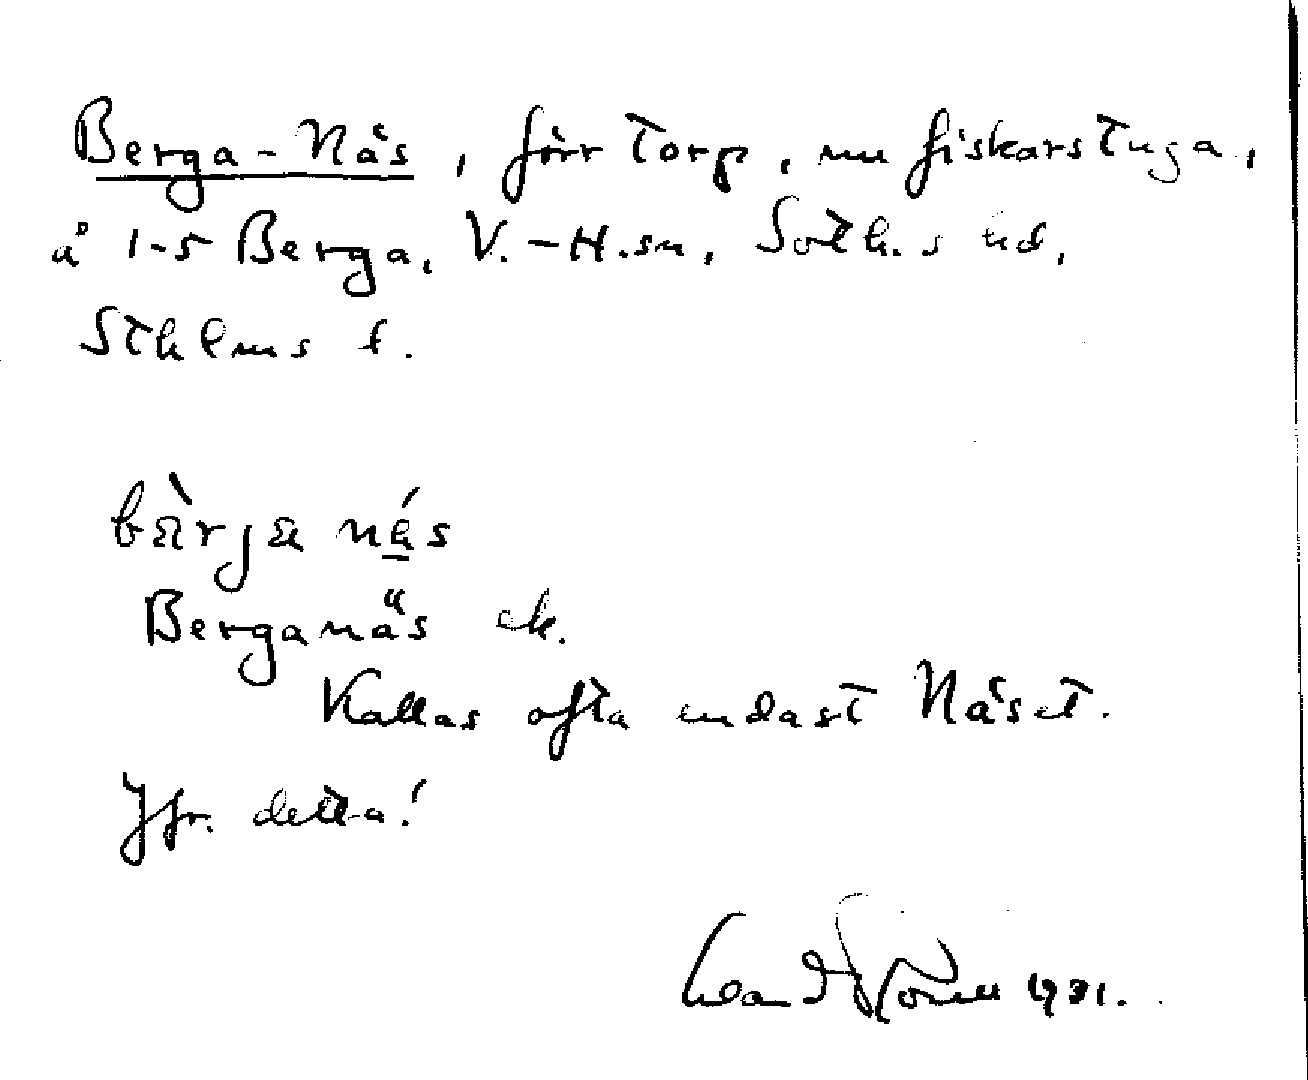 Berga-Näs, förr torp, nu fiskarstuga,
å 1-5 Berga, V.-H. sn, Soth.s hd,
Sthlms l.
Berganäs ek.
Kallas ofta endast Näset.
Jfr. detta!
1931.